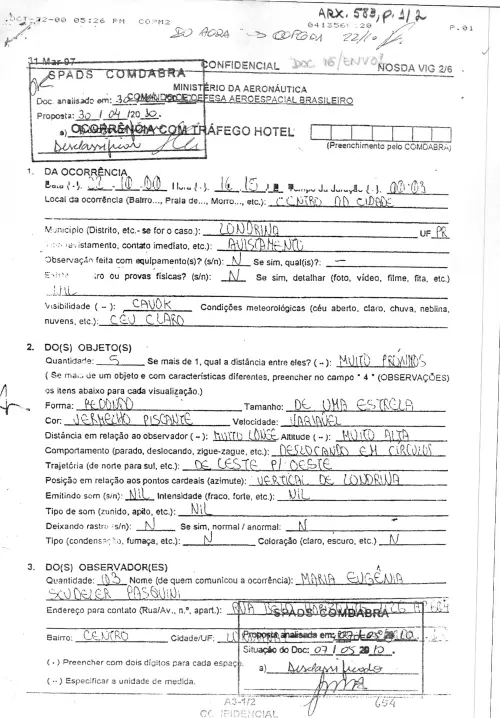 OCT-22-00 05:26 PM COPM2
ARX. 583, p. 1/2
P.01
31 Mar 97
CONFIDENCIAL
NOSDA VIG 2/6
SPADS COMDABRA
MINISTÉRIO DA AERONÁUTICA
COMANDO DE DEFESA AEROESPACIAL BRASILEIRO
Doc. analisado em:
Proposta: 30 / 04 /20
a)
Desclassificar
OCORRÊNCIA COM TRÁFEGO HOTEL
(Preenchimento pelo COMDABRA)
1. DA OCORRÊNCIA
22-10-00 16:15 00:03
Local da ocorrência (Bairro..., Praia de..., Morro..., etc.): CENTRO DA CIDADE
Município (Distrito, etc.- se for o caso.): LONDRINA UF PR
contato imediato, etc.): AVISTAMENTO
Observação feita com equipamento(s)? (s/n): N Se sim, qual(is)?: —
ou provas físicas? (s/n): N Se sim, detalhar (foto, vídeo, filme, fita, etc.)
NIL
Visibilidade ( -- ): CAVOK Condições meteorológicas (céu aberto, claro, chuva, neblina,
nuvens, etc.): CÉU CLARO
2. DO(S) OBJETO(S)
Quantidade: 5 Se mais de 1, qual a distância entre eles? ( -- ): MUITO PRÓXIMOS
( Se mais de um objeto e com características diferentes, preencher no campo " 4 " (OBSERVAÇÕES)
os itens abaixo para cada visualização.)
Forma: REDONDO Tamanho: DE UMA ESTRELA
Cor: VERMELHO PISCANTE Velocidade: VARIÁVEL
Distância em relação ao observador ( -- ): MUITO LONGE Altitude ( -- ): MUITO ALTA
Comportamento (parado, deslocando, zigue-zague, etc.): DESLOCANDO EM CÍRCULOS
Trajetória (de norte para sul, etc.): DE LESTE P/ OESTE
Posição em relação aos pontos cardeais (azimute): VERTICAL DE LONDRINA
Emitindo som (s/n): NIL Intensidade (fraco, forte, etc.): NIL
Tipo de som (zunido, apito, etc.): NIL
Deixando rastro (s/n): N Se sim, normal / anormal: N
Tipo (condensação, fumaça, etc.): N Coloração (claro, escuro, etc.) N
3. DO(S) OBSERVADOR(ES)
Quantidade: 03 Nome (de quem comunicou a ocorrência): MARIA EUGÊNIA
SCUDELER PASQUINI
Endereço para contato (Rua/Av., n.º, apart.): RUA
SPADS COMDABRA
Bairro: CENTRO Cidade/UF:
Proposta analisada em: 07 / 05 2010
Situação do Doc: 07 / 05 2010.
( - ) Preencher com dois dígitos para cada espaço.
a) Desclassificado
( -- ) Especificar a unidade de medida.
A3-1/2
654
CONFIDENCIAL